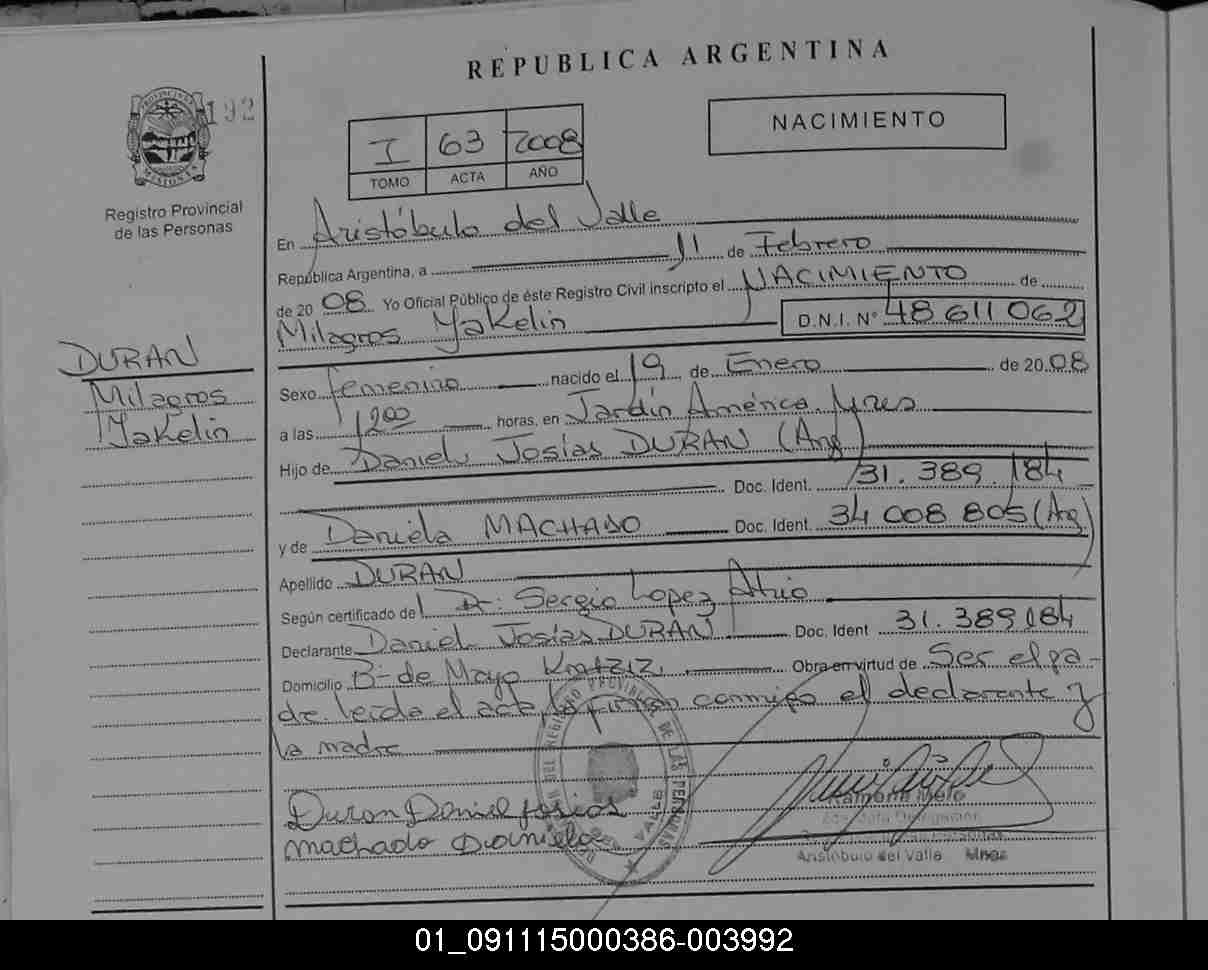 REPUBLICA ARGENTINA
PROVINCIA DE MISIONES
192
Registro Provincial
de las Personas
I 63 2008
TOMO ACTA AÑO
NACIMIENTO
En Aristóbulo del Valle
República Argentina, a 11 de Febrero
de 20 08 Yo Oficial Público de éste Registro Civil inscripto el NACIMIENTO de
Milagros Yakelin D.N.I. N° 48 611 062
DURAN
Milagros
Yakelin
Sexo femenino nacido el 19 de Enero de 20 08
a las 12 00 horas, en Jardín América, Mnes
Hijo de Daniel Josías DURAN (Arg)
Doc. Ident. 31.389.184
y de Daniela MACHADO Doc. Ident. 34 008 805 (Arg)
Apellido DURAN
Según certificado del Dr. Sergio Lopez
Declarante Daniel Josías DURAN Doc. Ident 31.389.184
Domicilio de Mayo Obra en virtud de Ser el pa-
dre. leída el acta, la firman conmigo el declarante y
la madre
Duran Daniel Josias
machado Daniela
DEL REGISTRO PROVINCIAL DE LAS PERSONAS
DEL VALLE
Ramona Melo
Delegación
de las Personas
Aristóbulo del Valle Mnes
01_091115000386-003992